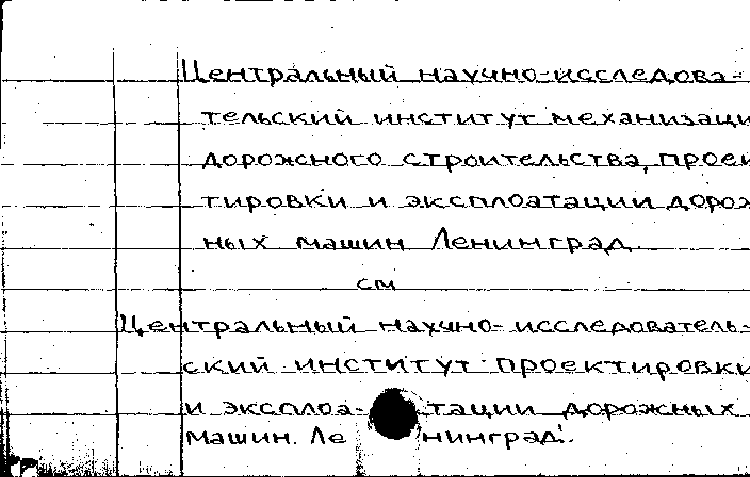 Центральный научно-исследова-
тельский институт механизаци
дорожного строительства, проек
тировки и эксплоатации дорож
ных машин Ленинград.
см
Центральный научно-исследователь-
ский институт проектировки
и эксплоа-тации дорожных
машин. Ленинград.